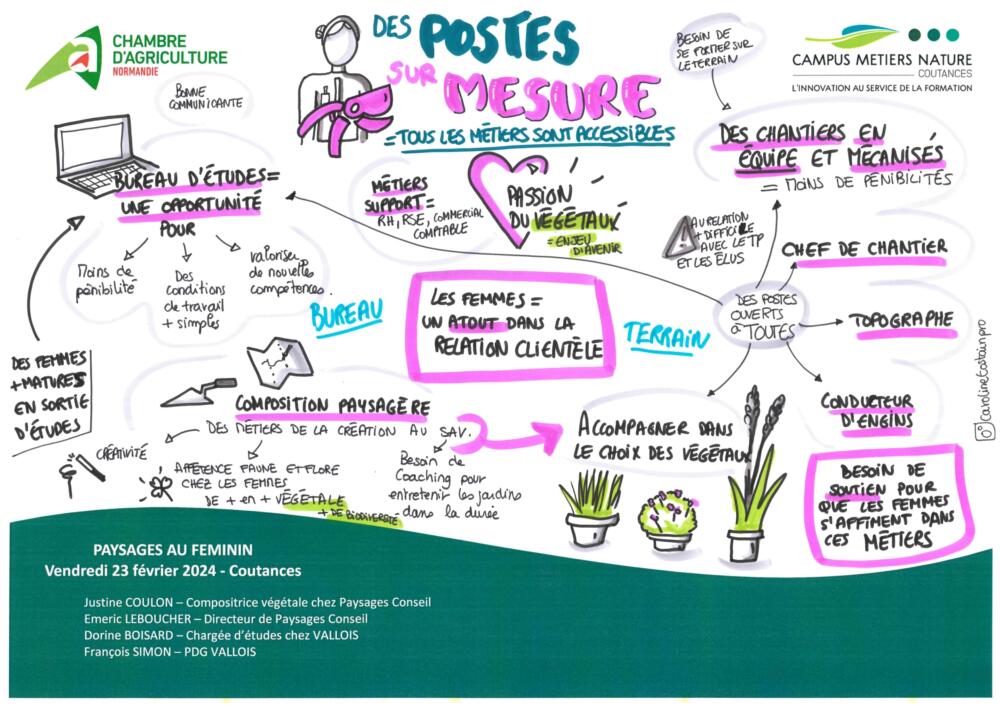 CHAMBRE
D'AGRICULTURE
NORMANDIE
DES POSTES
SUR MESURE
= TOUS LES MÉTIERS SONT ACCESSIBLES
BESOIN DE
SE FORMER SUR
LE TERRAIN
CAMPUS METIERS NATURE
COUTANCES
L'INNOVATION AU SERVICE DE LA FORMATION
BONNE
COMMUNICANTE
BUREAU D'ÉTUDES=
UNE OPPORTUNITÉ
POUR
Moins de
pénibilité
Des
conditions
de travail
+ simples
Valoriser
de nouvelles
compétences.
MÉTIERS
SUPPORT =
RH, RSE, COMMERCIAL
COMPTABLE
PASSION
DU VÉGÉTAUX
= ENJEU
D'AVENIR
DES CHANTIERS EN
ÉQUIPE ET MÉCANISÉS
= MOINS DE PÉNIBILITÉS
RELATION
+ DIFFICILE
AVEC LE TP
ET LES ÉLUS
CHEF DE CHANTIER
DES POSTES
OUVERTS
à TOUTES
TOPOGRAPHE
CONDUCTEUR
D'ENGINS
BUREAU
LES FEMMES =
UN ATOUT DANS LA
RELATION CLIENTÈLE
TERRAIN
DES FEMMES
+ MATURES
EN SORTIE
D'ÉTUDES
COMPOSITION PAYSAGÈRE
DES MÉTIERS DE LA CRÉATION AU SAV.
CRÉATIVITÉ
AFFÉTENCE FAUNE ET FLORE
CHEZ LES FEMMES
DE + en + VÉGÉTALE
+ DE BIODIVERSITÉ
Besoin de
Coaching pour
entretenir les jardins
dans la durée
ACCOMPAGNER DANS
LE CHOIX DES VÉGÉTAUX
BESOIN DE
SOUTIEN POUR
QUE LES FEMMES
S'AFFIMENT DANS
CES MÉTIERS
@carolinetostain.pro
PAYSAGES AU FEMININ
Vendredi 23 février 2024 - Coutances
Justine COULON – Compositrice végétale chez Paysages Conseil
Emeric LEBOUCHER – Directeur de Paysages Conseil
Dorine BOISARD – Chargée d'études chez VALLOIS
François SIMON – PDG VALLOIS